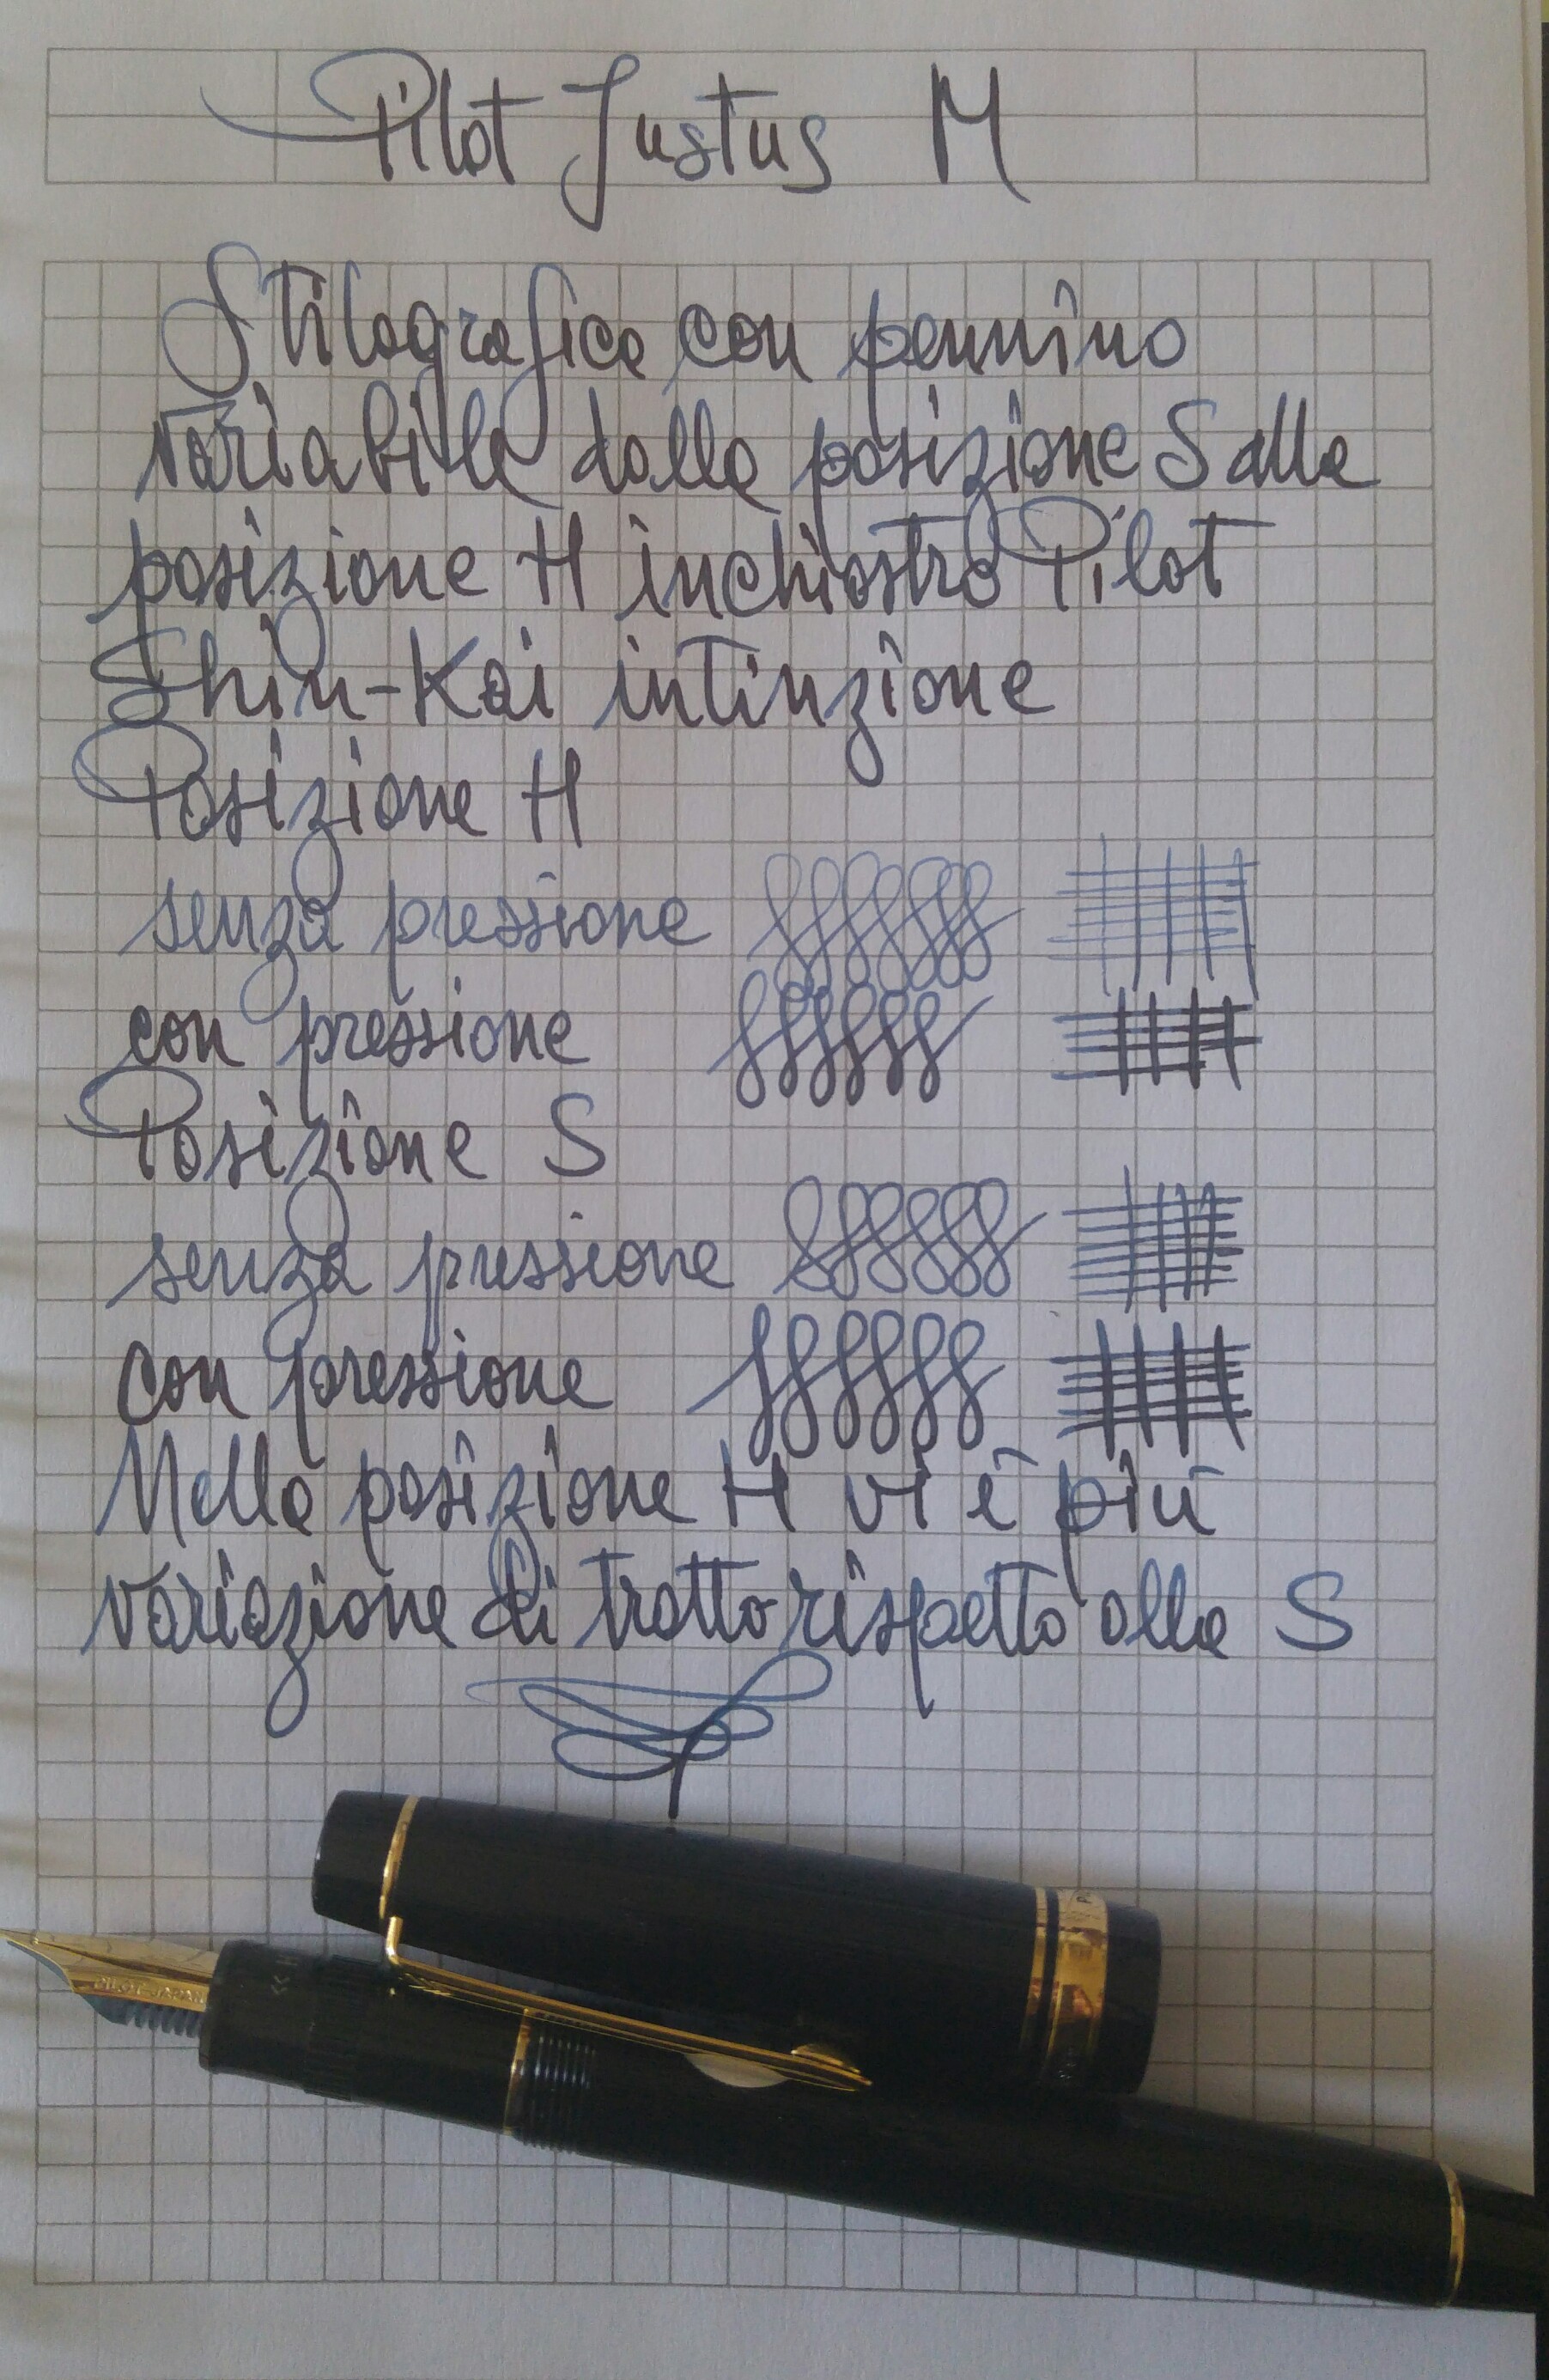 Pilot Justus M
Stilografica con pennino
variabile dalla posizione S alla
posizione H inchiostro Pilot
Shin-Kai intinzione
Posizione H
senza pressione
con pressione
Posizione S
senza pressione
con pressione
Nella posizione H vi è più
variazione di tratto rispetto alla S
PILOT JAPAN